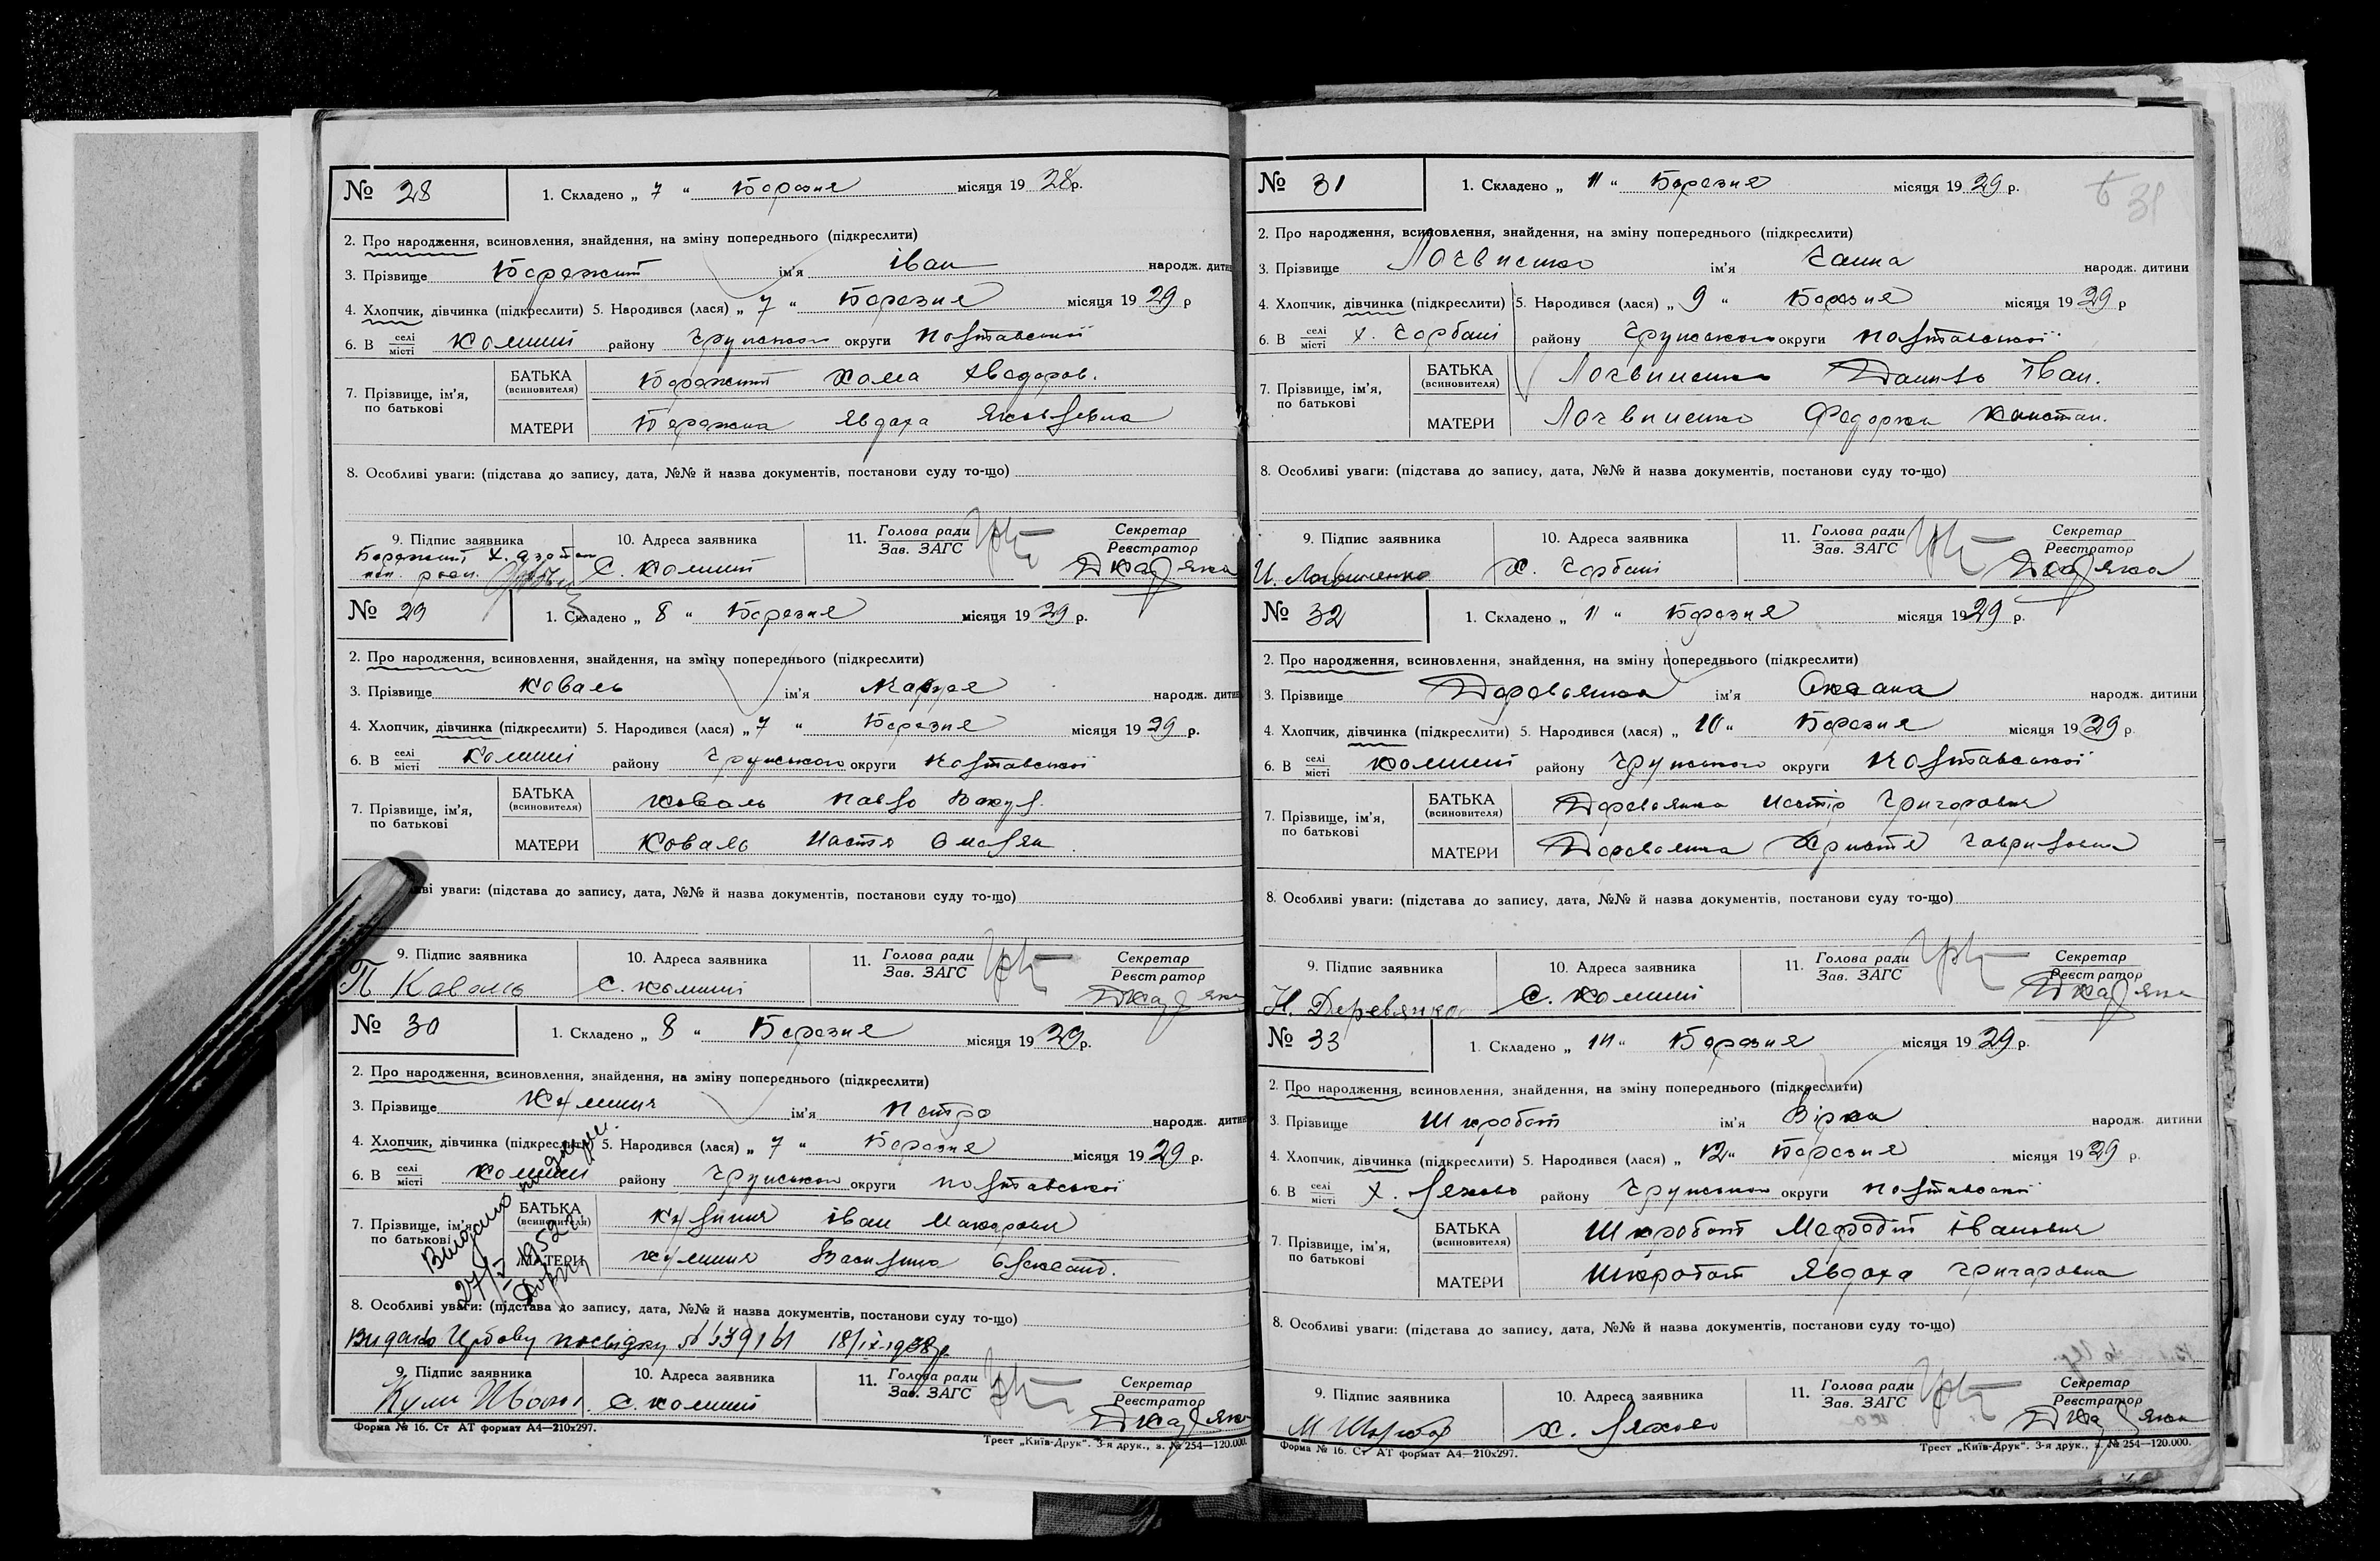 № 28
1. Складено „ 7 “ Березня місяця 19 28 р.
2. Про народження, всиновлення, знайдення, на зміну попереднього (підкреслити)
3. Прізвище Бережний ім'я Іван народж. дити
4. Хлопчик, дівчинка (підкреслити) 5. Народився (лася) „ 7 “ Березня місяця 19 29 р
6. В селі/місті району округи Полтавської
7. Прізвище, ім'я, по батькові
БАТЬКА (всиновителя) Бережний Хома Хведоров.
МАТЕРИ Бережна Явдоха Яковлевна
8. Особливі уваги: (підстава до запису, дата, №№ й назва документів, постанови суду то-що)
9. Підпис заявника 10. Адреса заявника 11. Голова ради/Зав. ЗАГС Секретар/Реєстратор
№ 29
1. Складено „ 8 “ Березня місяця 19 29 р.
2. Про народження, всиновлення, знайдення, на зміну попереднього (підкреслити)
3. Прізвище Коваль ім'я Марія народж. дити
4. Хлопчик, дівчинка (підкреслити) 5. Народився (лася) „ 7 “ Березня місяця 19 29 р.
6. В селі/місті району округи Полтавської
7. Прізвище, ім'я, по батькові
БАТЬКА (всиновителя) Коваль Павло Вакул.
МАТЕРИ Коваль Настя Омелян.
ві уваги: (підстава до запису, дата, №№ й назва документів, постанови суду то-що)
9. Підпис заявника 10. Адреса заявника 11. Голова ради/Зав. ЗАГС Секретар/Реєстратор
П Коваль
№ 30
1. Складено „ 8 “ Березня місяця 19 29 р.
2. Про народження, всиновлення, знайдення, на зміну попереднього (підкреслити)
3. Прізвище ім'я Петро народж. дити
4. Хлопчик, дівчинка (підкреслити) 5. Народився (лася) „ 7 “ Березня місяця 19 29 р.
6. В селі/місті району округи Полтавської
7. Прізвище, ім'я, по батькові
БАТЬКА (всиновителя) Іван Макарович
МАТЕРИ Василина Олександ.
27/ 1952
8. Особливі уваги: (підстава до запису, дата, №№ й назва документів, постанови суду то-що)
Видано посвідку
9. Підпис заявника 10. Адреса заявника 11. Голова ради/Зав. ЗАГС Секретар/Реєстратор
Форма № 16. Ст АТ формат А4—210х297.
Трест „Київ-Друк“. 3-я друк., з. № 254—120.000.
№ 31
1. Складено „ 11 “ Березня місяця 19 29 р.
31
2. Про народження, всиновлення, знайдення, на зміну попереднього (підкреслити)
3. Прізвище Логвиненко ім'я Ганна народж. дитини
4. Хлопчик, дівчинка (підкреслити) 5. Народився (лася) „ 9 “ Березня місяця 19 29 р
6. В селі/місті х. Горбані району округи Полтавської
7. Прізвище, ім'я, по батькові
БАТЬКА (всиновителя) Логвиненко Данило Іван.
МАТЕРИ Логвиненко Федорка Констан.
8. Особливі уваги: (підстава до запису, дата, №№ й назва документів, постанови суду то-що)
9. Підпис заявника 10. Адреса заявника 11. Голова ради/Зав. ЗАГС Секретар/Реєстратор
Х. Горбані
№ 32
1. Складено „ 11 “ Березня місяця 19 29 р.
2. Про народження, всиновлення, знайдення, на зміну попереднього (підкреслити)
3. Прізвище Деревянка ім'я Оксана народж. дитини
4. Хлопчик, дівчинка (підкреслити) 5. Народився (лася) „ 10 “ Березня місяця 19 29 р.
6. В селі/місті району округи Полтавської
7. Прізвище, ім'я, по батькові
БАТЬКА (всиновителя) Деревянка Нестір Григорович
МАТЕРИ Деревянка Христя Гавриловна
8. Особливі уваги: (підстава до запису, дата, №№ й назва документів, постанови суду то-що)
9. Підпис заявника 10. Адреса заявника 11. Голова ради/Зав. ЗАГС Секретар/Реєстратор
Н. Деревянко
№ 33
1. Складено „ “ Березня місяця 19 29 р.
2. Про народження, всиновлення, знайдення, на зміну попереднього (підкреслити)
3. Прізвище Шкробот ім'я Вірка народж. дитини
4. Хлопчик, дівчинка (підкреслити) 5. Народився (лася) „ 12 “ Березня місяця 19 29 р.
6. В селі/місті х. Ляхово району округи Полтавської
7. Прізвище, ім'я, по батькові
БАТЬКА (всиновителя) Шкробот Мефодій Іванович
МАТЕРИ Шкробот Явдоха Григоровна
8. Особливі уваги: (підстава до запису, дата, №№ й назва документів, постанови суду то-що)
9. Підпис заявника 10. Адреса заявника 11. Голова ради/Зав. ЗАГС Секретар/Реєстратор
Х. Ляхово
Форма № 16. Ст АТ формат А4—210х297.
Трест „Київ-Друк“. 3-я друк., з. № 254—120.000.